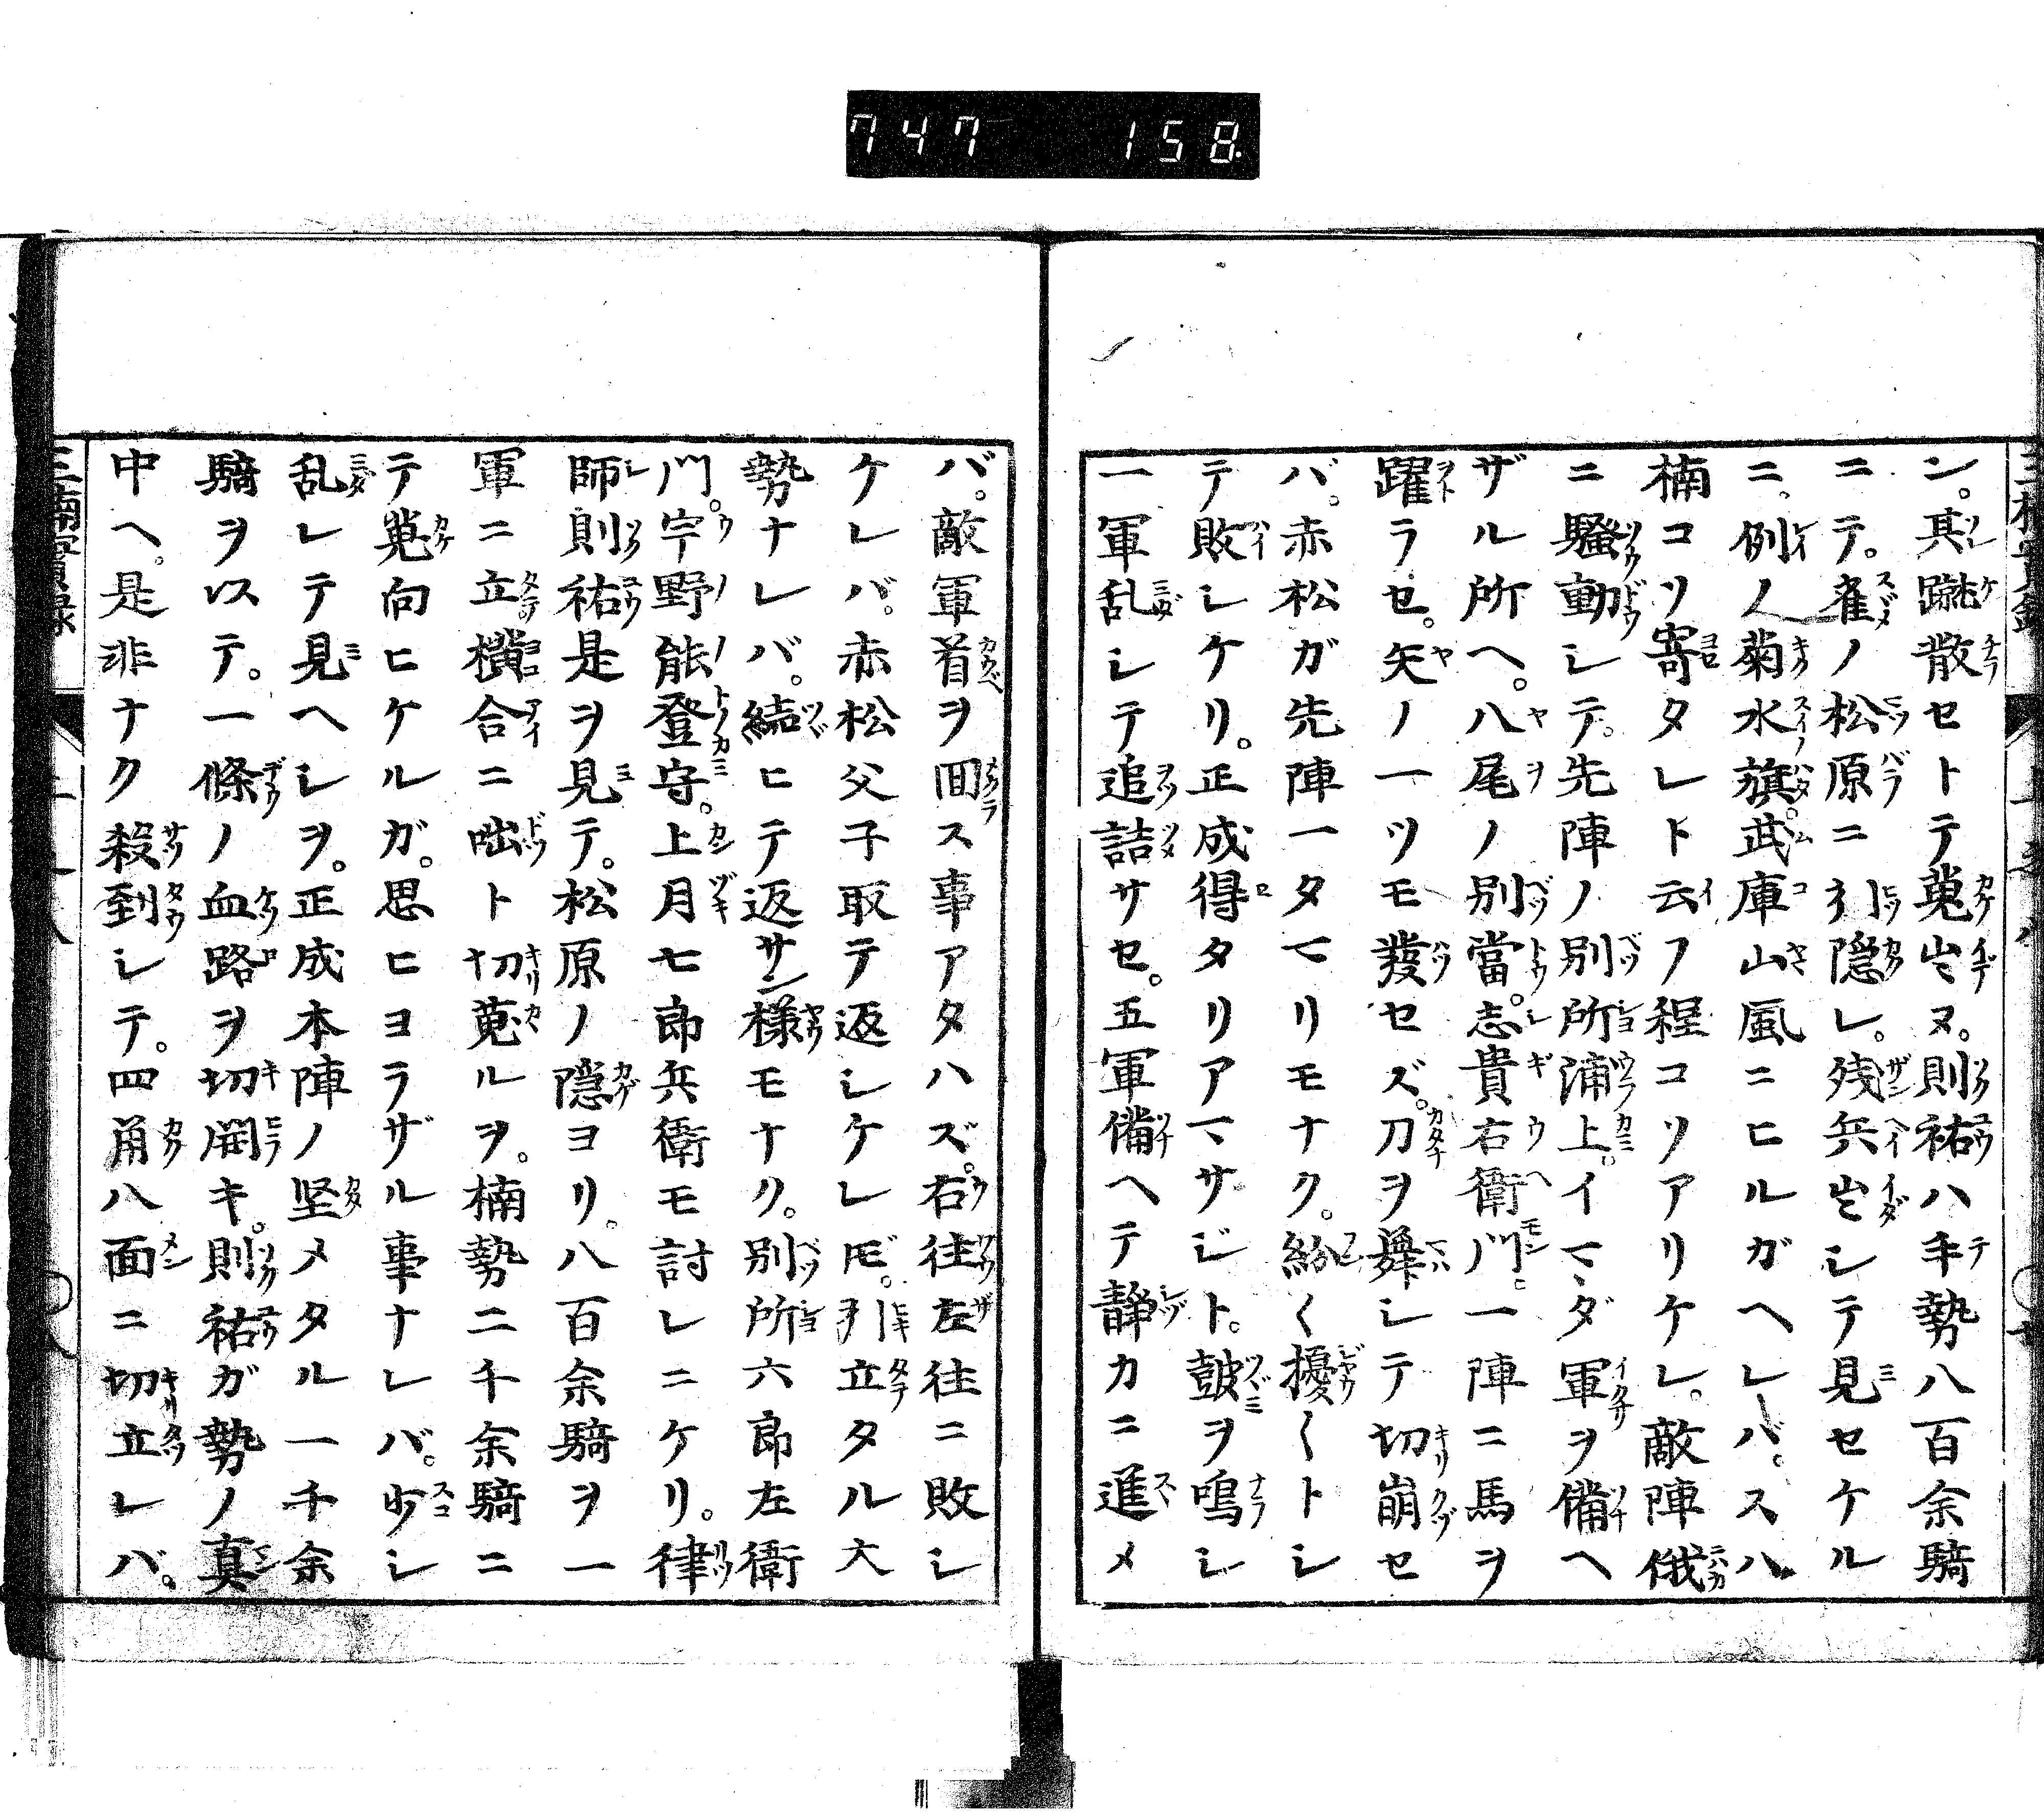 747 158
ン。其蹴散セトテ蒐出ヌ。則祐ハ手勢八百余騎
ニテ。雀ノ松原ニ引隠レ。残兵出シテ見セケル
ニ。例ノ菊水旗。武庫山風ニヒルガヘレバ。スハ
楠コソ寄タレト云フ程コソアリケレ。敵陣俄
ニ騒動シテ。先陣ノ別所浦上。イマダ軍ヲ備ヘ
ザル所ヘ。八尾ノ別當。志貴右衛門。一陣ニ馬ヲ
躍ラセ。矢ノ一ツモ發セズ。刀ヲ舞シテ切崩セ
バ。赤松ガ先陣一タマリモナク。紛〱擾〱トシ
テ敗シケリ。正成得タリアマサジト。鼓ヲ鳴シ
一軍乱シテ追詰サセ。五軍備ヘテ静カニ進メ
バ。敵軍首ヲ囬ス事アタハズ。右往左往ニ敗シ
ケレバ。赤松父子取テ返シケレ𪜈。引立タル大
勢ナレバ。続ヒテ返サン様モナク。別所六郎左衛
門。宇野能登守。上月七郎兵衛モ討レニケリ。律
師則祐是ヲ見テ。松原ノ隠ヨリ。八百余騎ヲ一
軍ニ立。横合ニ咄ト切蒐ルヲ。楠勢二千余騎ニ
テ蒐向ヒケルガ。思ヒヨラザル事ナレバ。少シ
乱レテ見ヘシヲ。正成本陣ノ坚メタル一千余
騎ヲ以テ。一條ノ血路ヲ切開キ。則祐ガ勢ノ真
中ヘ。是非ナク殺到シテ。四角八面ニ切立レバ。